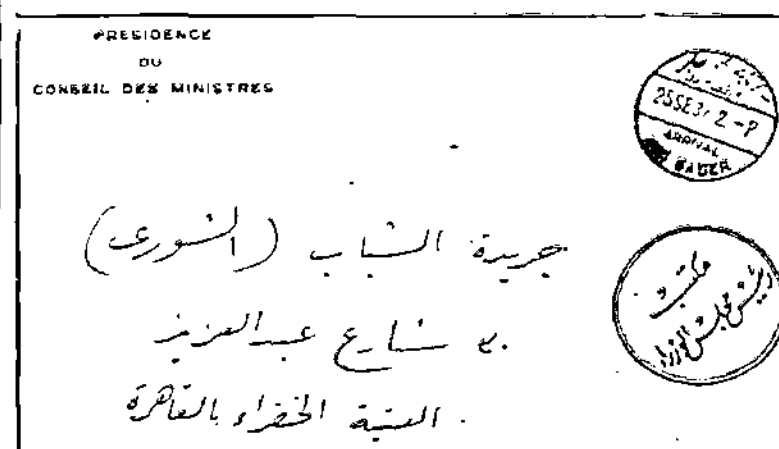 PRESIDENCE
DU
CONSEIL DES MINISTRES
25SE37 2-P
ARRIVAL
BADER
جريدة الشباب (الشورى)
شارع عبد العزيز
العتبة الخضراء بالقاهرة
مكتب
رئيس مجلس الوزراء